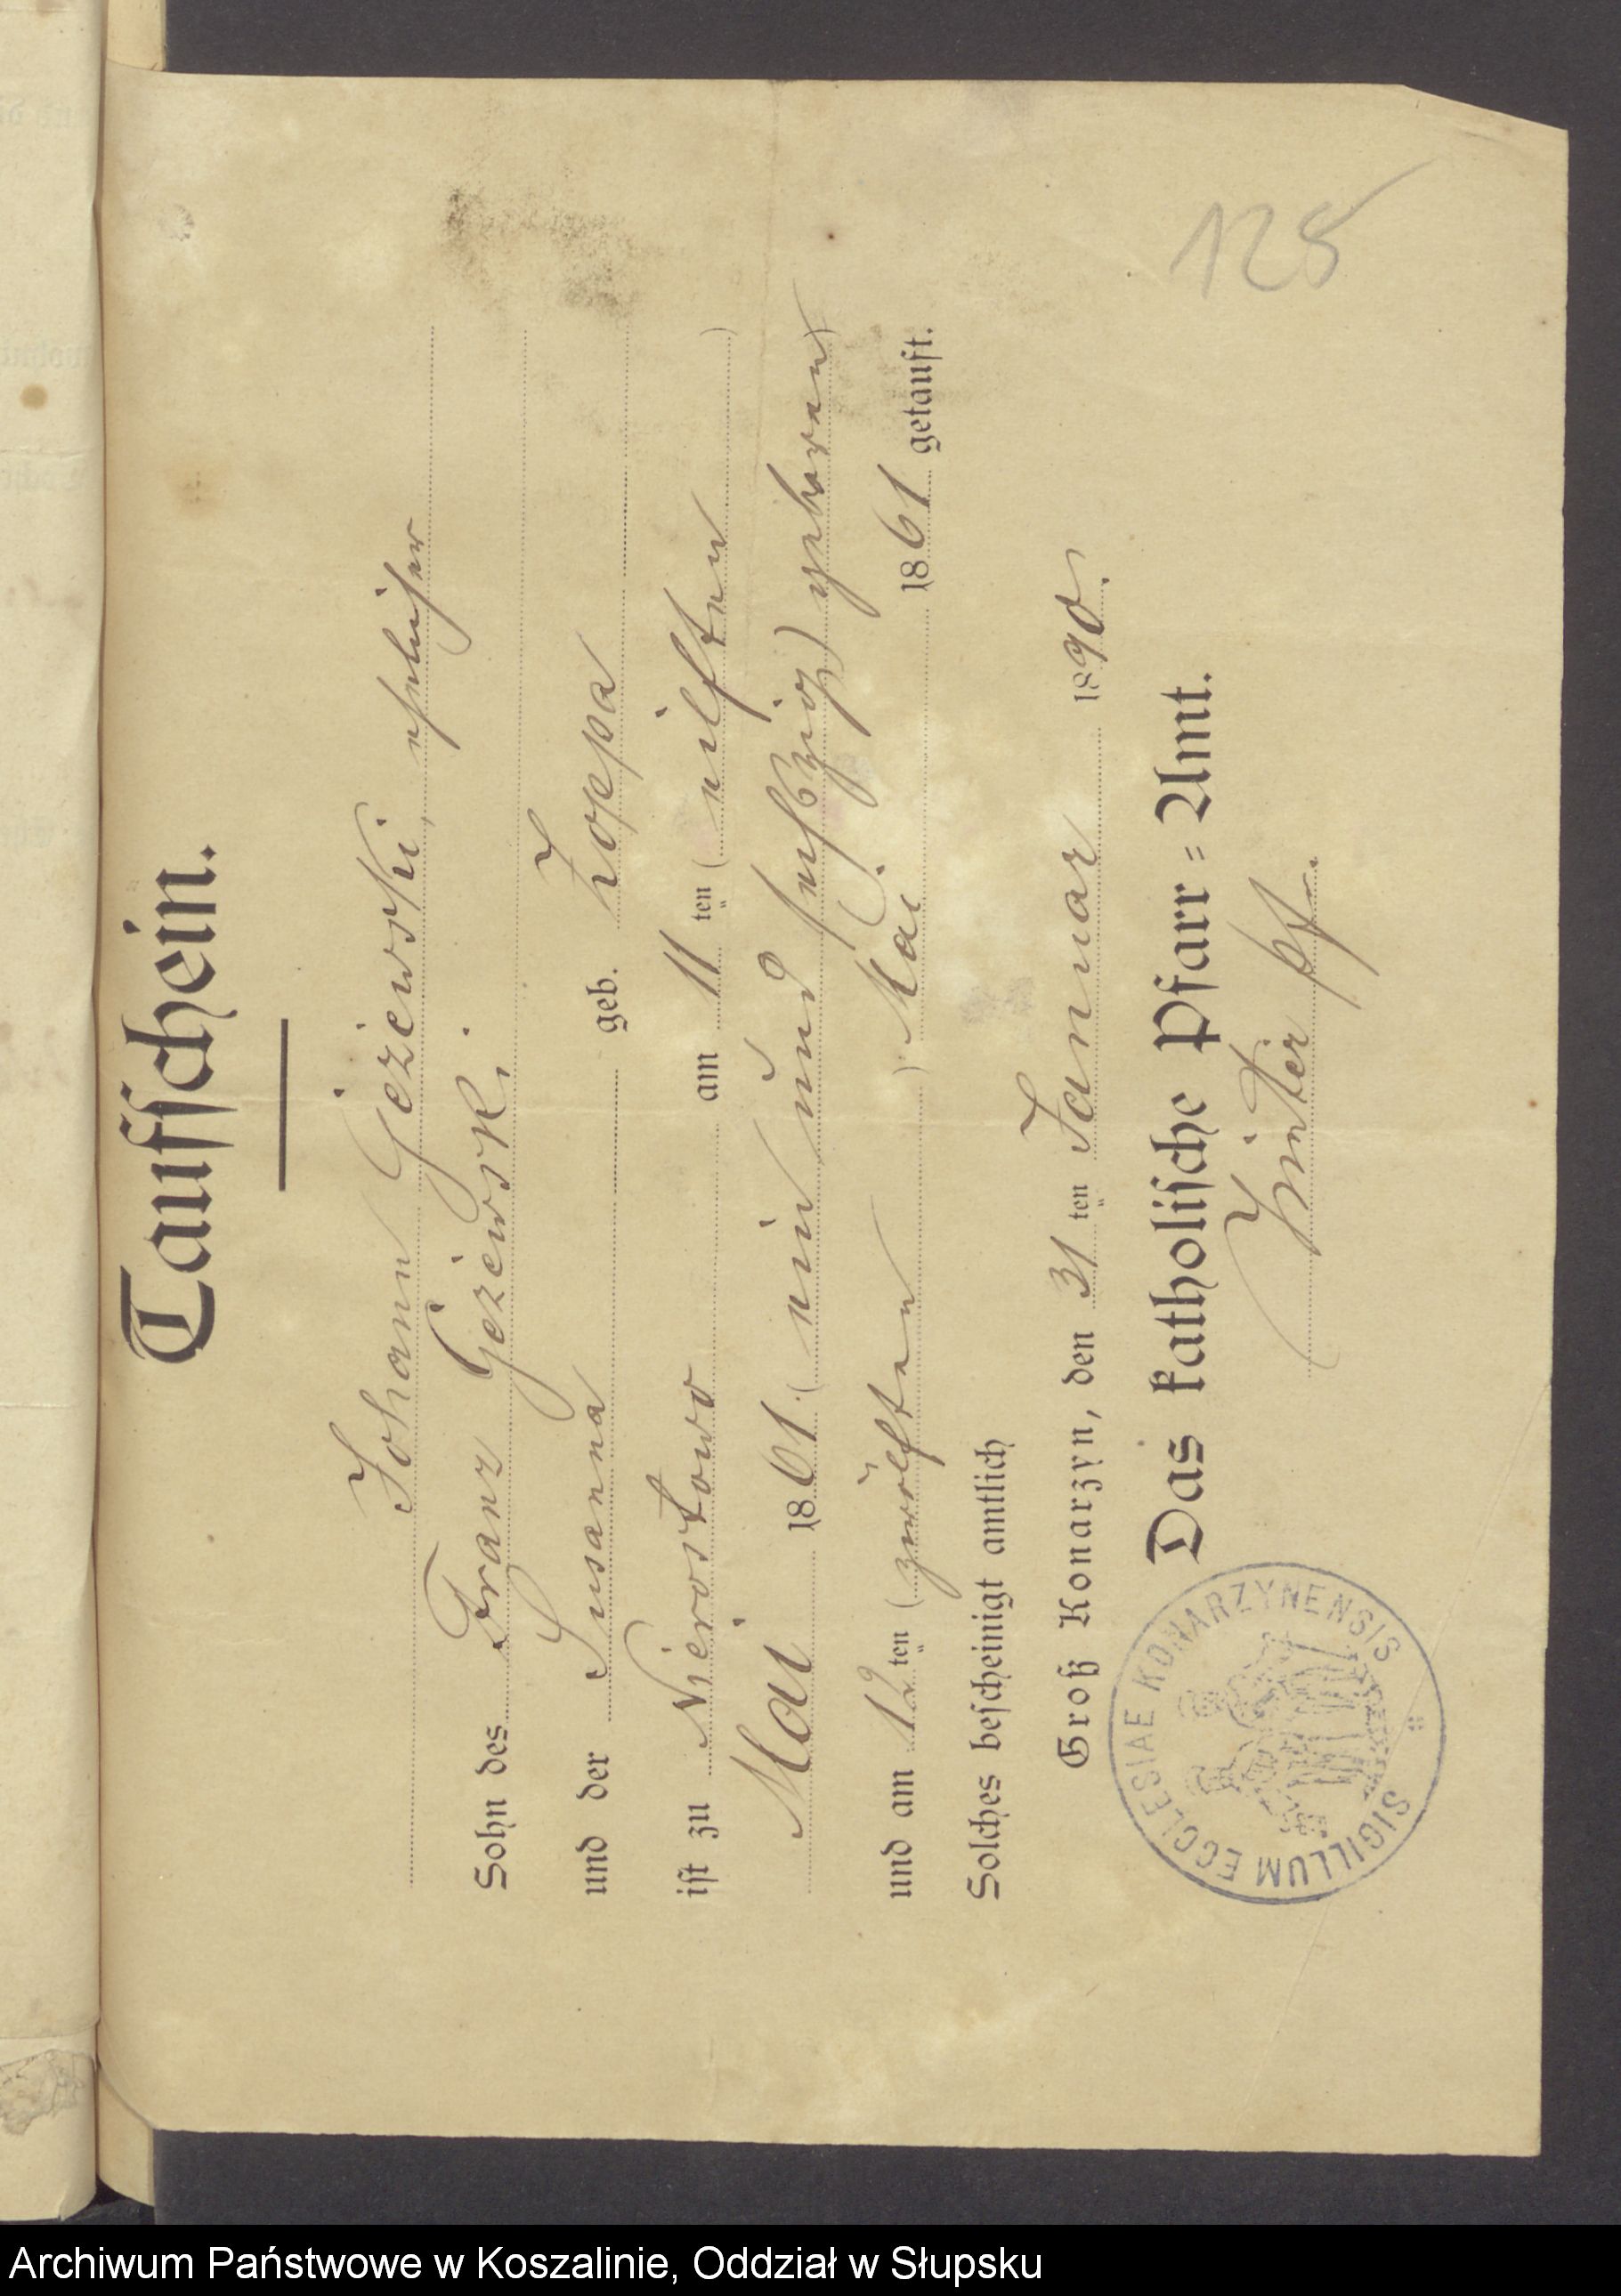 Taufschein.
Johann Gieziewski, ehelicher
Sohn des Franz Gieziewski
und der Susanna geb. Zoppa
ist zu Nierostowo am 11 ten (eilften)
Mai 1861. (ein und sechszig) geboren
und am 12 ten (zwölften) Mai 1861 getauft.
Solches bescheinigt amtlich
Groß Konarzyn, den 31 ten Januar 1890.
Das katholische Pfarr-Amt.
Pf.
SIGILLUM ECCLESIAE KONARZYNENSIS
128
Archiwum Państwowe w Koszalinie, Oddział w Słupsku